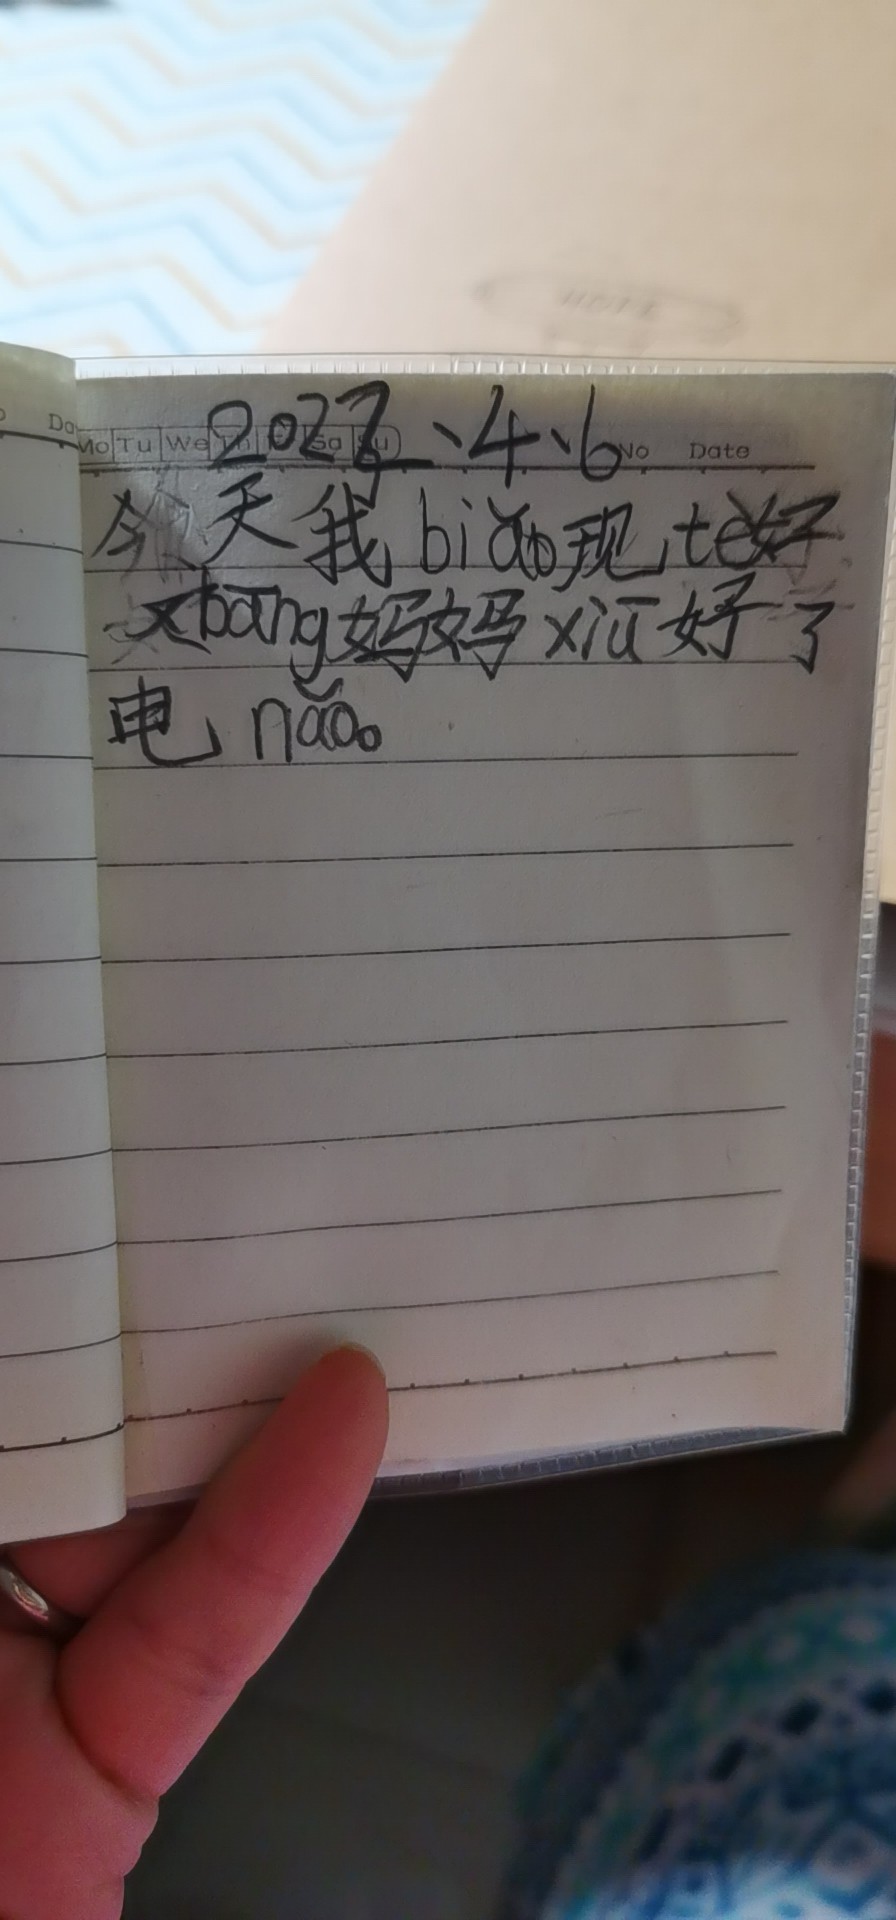 Mo Tu We Th Sa Su No Date
2022、4、6
今天我biǎo现tè好
又bāng妈妈xiū好了
电nǎo。